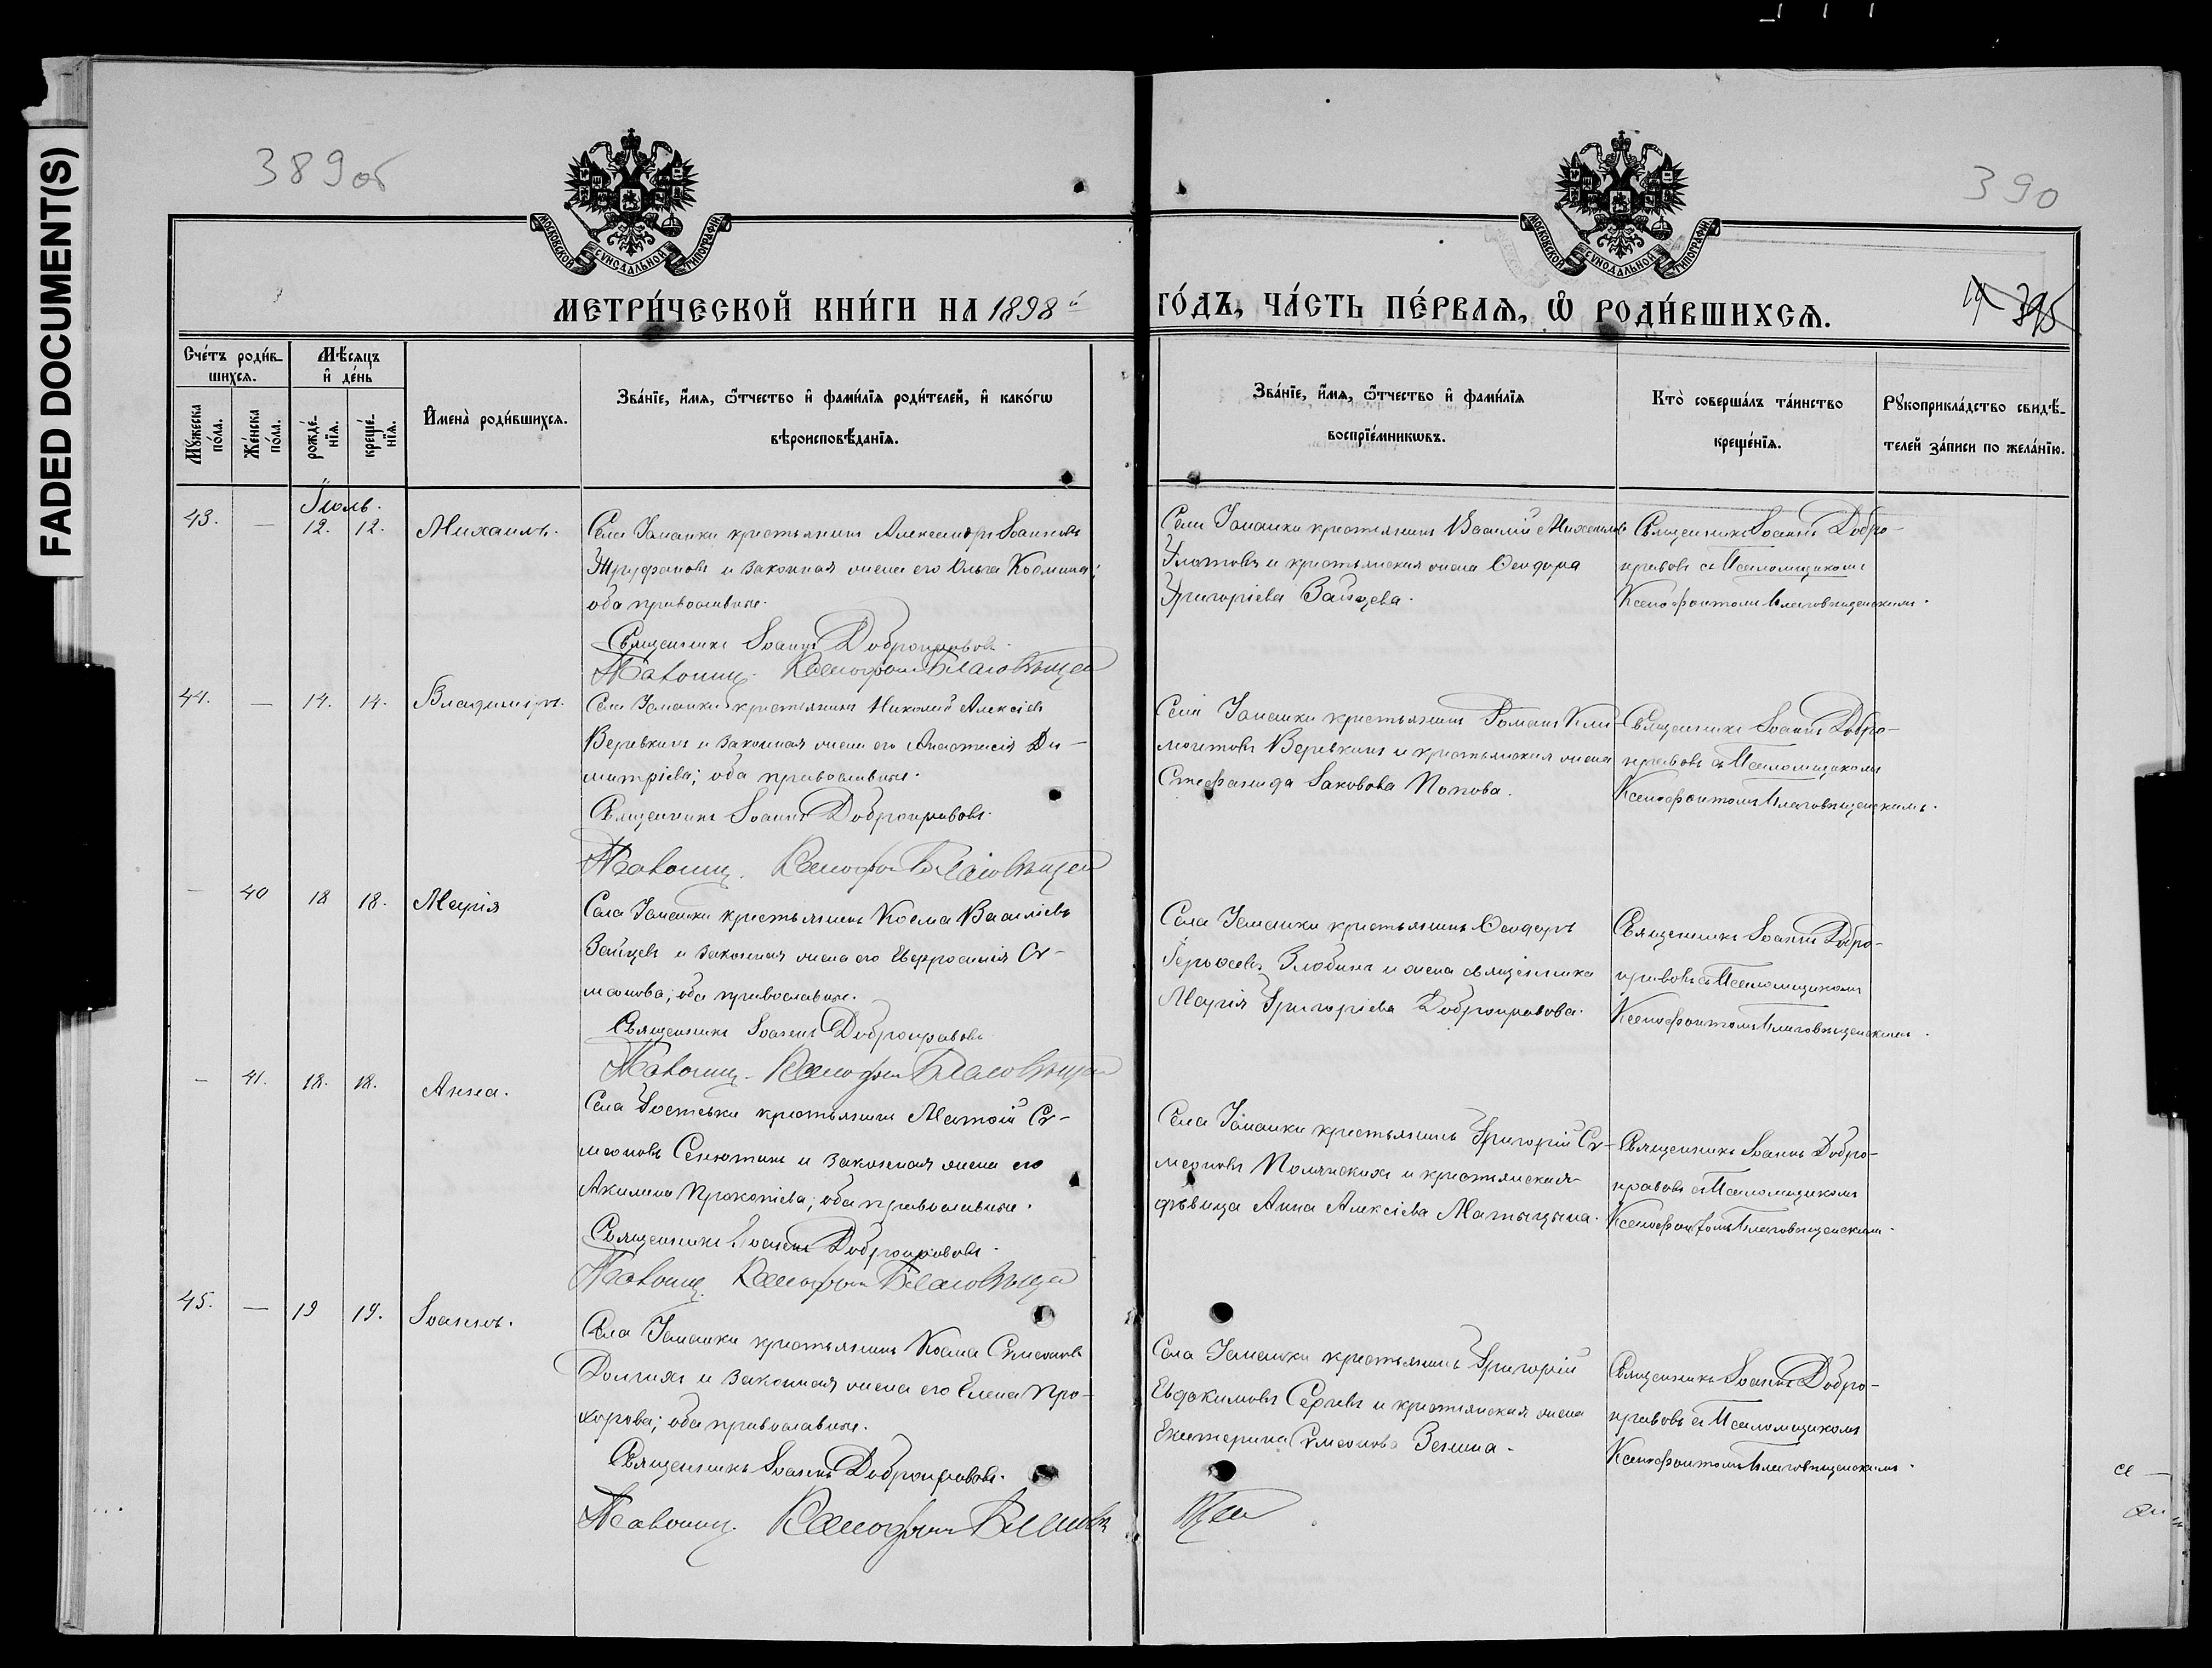 FADED DOCUMENT(S)
389об
390
МОСКОВСКОЙ СѴНОДАЛЬНОЙ ТИПОГРАФІИ
МОСКОВСКОЙ СѴНОДАЛЬНОЙ ТИПОГРАФІИ
МЕТРИ́ЧЕСКОЙ КНИ́ГИ НА 1898й
ГО́ДЪ, ЧА́СТЬ ПЕ́РВАѦ, Ѡ҆ РОДИ́ВШИХСѦ.
395
Сче́тъ роди́в-
шихсѧ.
Мѣ́сѧцъ
и҆ де́нь
Мꙋ́жеска
по́ла.
Же́нска
по́ла.
рожде́-
нїѧ.
креще́-
нїѧ.
И҆мена̀ роди́вшихсѧ.
Зва́нїе, и҆́мѧ, ѻ҆́тчество и҆ фами́лїѧ роди́телей, и҆ како́гѡ
вѣроисповѣ́данїѧ.
Зва́нїе, и҆́мѧ, ѻ҆́тчество и҆ фами́лїѧ
воспрїе́мникѡвъ.
Кто̀ соверша́лъ та́инство
креще́нїѧ.
Рꙋкоприкла́дство свидѣ́-
телей за́писи по жела́нїю.
Іюль.
43. — 12. 12. Михаилъ.
Села крестьянинъ Александръ Іоанновъ
Труфановъ и законная жена его Ольга Косьмина;
оба православные.
Священникъ Іоаннъ Доброправовъ.
Псаломщ. Ксенофонтъ Благовѣщен
Села крестьянинъ Василій Михаиловъ
Златовъ и крестьянская жена Ѳеодора
Григоріева Зайцева.
Священникъ Іоаннъ Добро-
правовъ съ Псаломщикомъ
Ксенофонтомъ Благовѣщенскимъ.
44. — 14. 14. Владиміръ.
Села крестьянинъ Николай Алексіевъ
Веревкинъ и законная жена его Анастасія Ди-
митріева; оба православные.
Священникъ Іоаннъ Доброправовъ.
Псаломщ. Ксенофон Благовѣщен
Села крестьянинъ Романъ Кли-
ментовъ Веревкинъ и крестьянская жена
Стефанида Іаковова Попова.
Священникъ Іоаннъ Добро-
правовъ съ Псаломщикомъ
Ксенофонтомъ Благовѣщенскимъ.
— 40 18 18. Марія
Села крестьянинъ Косма Василіевъ
Зайцевъ и законная жена его Евфросинія Сѵ-
меонова; оба православные.
Священникъ Іоаннъ Доброправовъ
Псаломщ. Ксенофон Благовѣщен
Села крестьянинъ Ѳеодоръ
Злобинъ и жена священника
Марія Григоріева Доброправова.
Священникъ Іоаннъ Добро-
правовъ съ Псаломщикомъ
Ксенофонтомъ Благовѣщенскимъ.
— 41. 18. 18. Анна.
Села крестьянинъ Матѳій Сѵ-
меоновъ Сенютинъ и законная жена его
Акилина Прокопіева; оба православные.
Священникъ Іоаннъ Доброправовъ.
Псаломщ. Ксенофон Благовѣщен
Села крестьянинъ Григорій Сѵ-
меоновъ Полянскихъ и крестьянская
дѣвица Анна Алексіева Матыцына.
Священникъ Іоаннъ Добро-
правовъ съ Псаломщикомъ
Ксенофонтомъ Благовѣщенскимъ.
45. — 19 19. Іоаннъ.
Села крестьянинъ Косма Сѵмеоновъ
Долгихъ и законная жена его Елена Про-
хорова; оба православные.
Священникъ Іоаннъ Доброправовъ.
Псаломщ. Ксенофон Благовѣ
Села крестьянинъ Григорій
Евдокимовъ и крестьянская жена
Екатерина Сѵмеонова Зенина.
Священникъ Іоаннъ Добро-
правовъ съ Псаломщикомъ
Ксенофонтомъ Благовѣщенскимъ.